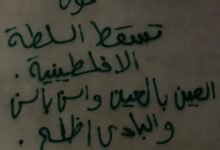 تسقط السلطة
الافلطينية.
العين بالعين والسن بالسن
والبادي اظلم.